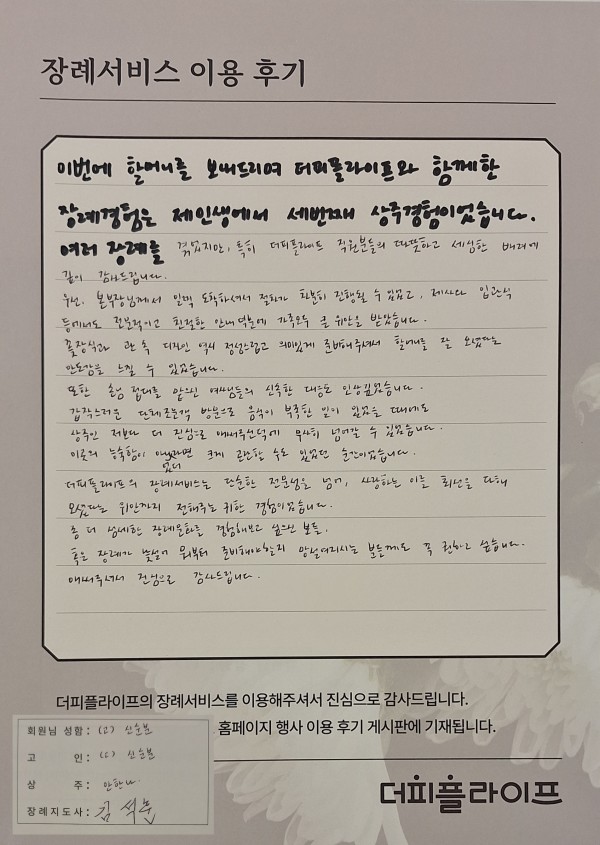 장례서비스 이용 후기
이번에 할머니를 보내드리며 더피플라이프와 함께한
장례경험은 제인생에서 세번째 상주경험이었습니다.
여러 장례를 겪었지만, 특히 더피플라이프 직원분들의 따뜻하고 세심한 배려에
깊이 감사드립니다.
우선, 본부장님께서 일찍 도착하셔서 절차가 차분히 진행될 수 있었고, 제사와 입관식
등에서도 전문적이고 친절한 안내 덕분에 가족모두 큰 위안을 받았습니다.
꽃장식과 관 속 디자인 역시 정성스럽고 의미있게 준비해주셔서 할머니를 잘 모셨다는
안도감을 느낄 수 있었습니다.
또한 손님 접대를 맡으신 여사님들의 신속한 대응도 인상깊었습니다.
갑작스러운 단체조문객 방문으로 음식이 부족한 일이 있었을 때에도
상주인 저보다 더 진심으로 애써주신덕에 무사히 넘어갈 수 있었습니다.
이분의 능숙함이 없더라면 크게 곤란할 수도 있었던 순간이었습니다.
더피플라이프의 장례서비스는 단순한 전문성을 넘어, 사랑하는 이를 최선을 다해
모셨다는 위안까지 전해주는 귀한 경험이었습니다.
좀 더 섬세한 장례문화를 경험해보고 싶으신 분들,
혹은 장례가 낯설어 뭐부터 준비해야할지 망설여지시는 분들께도 꼭 권하고 싶습니다.
애써주셔서 진심으로 감사드립니다.
더피플라이프의 장례서비스를 이용해주셔서 진심으로 감사드립니다.
홈페이지 행사 이용 후기 게시판에 기재됩니다.
회원님 성함 : (고) 신순분
고 인 : (고) 신순분
상 주 : 안한나
장례지도사 : 김석
더피플라이프